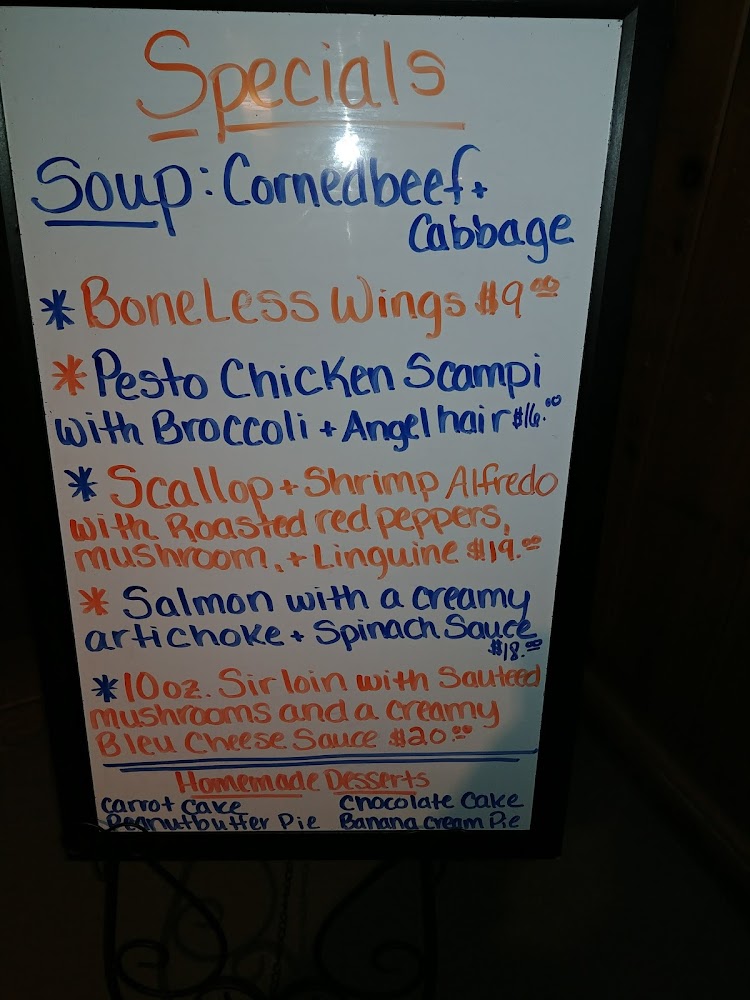 Specials
Soup: Cornedbeef +
Cabbage
* Boneless Wings $9.00
* Pesto Chicken Scampi
with Broccoli + Angel hair $16.00
* Scallop + Shrimp Alfredo
with Roasted red peppers,
mushroom, + Linguine $19.00
* Salmon with a creamy
artichoke + Spinach Sauce
$18.00
* 10oz. Sirloin with Sauteed
mushrooms and a creamy
Bleu Cheese Sauce $20.00
Homemade Desserts
Carrot Cake Chocolate Cake
Peanutbutter Pie Banana cream Pie